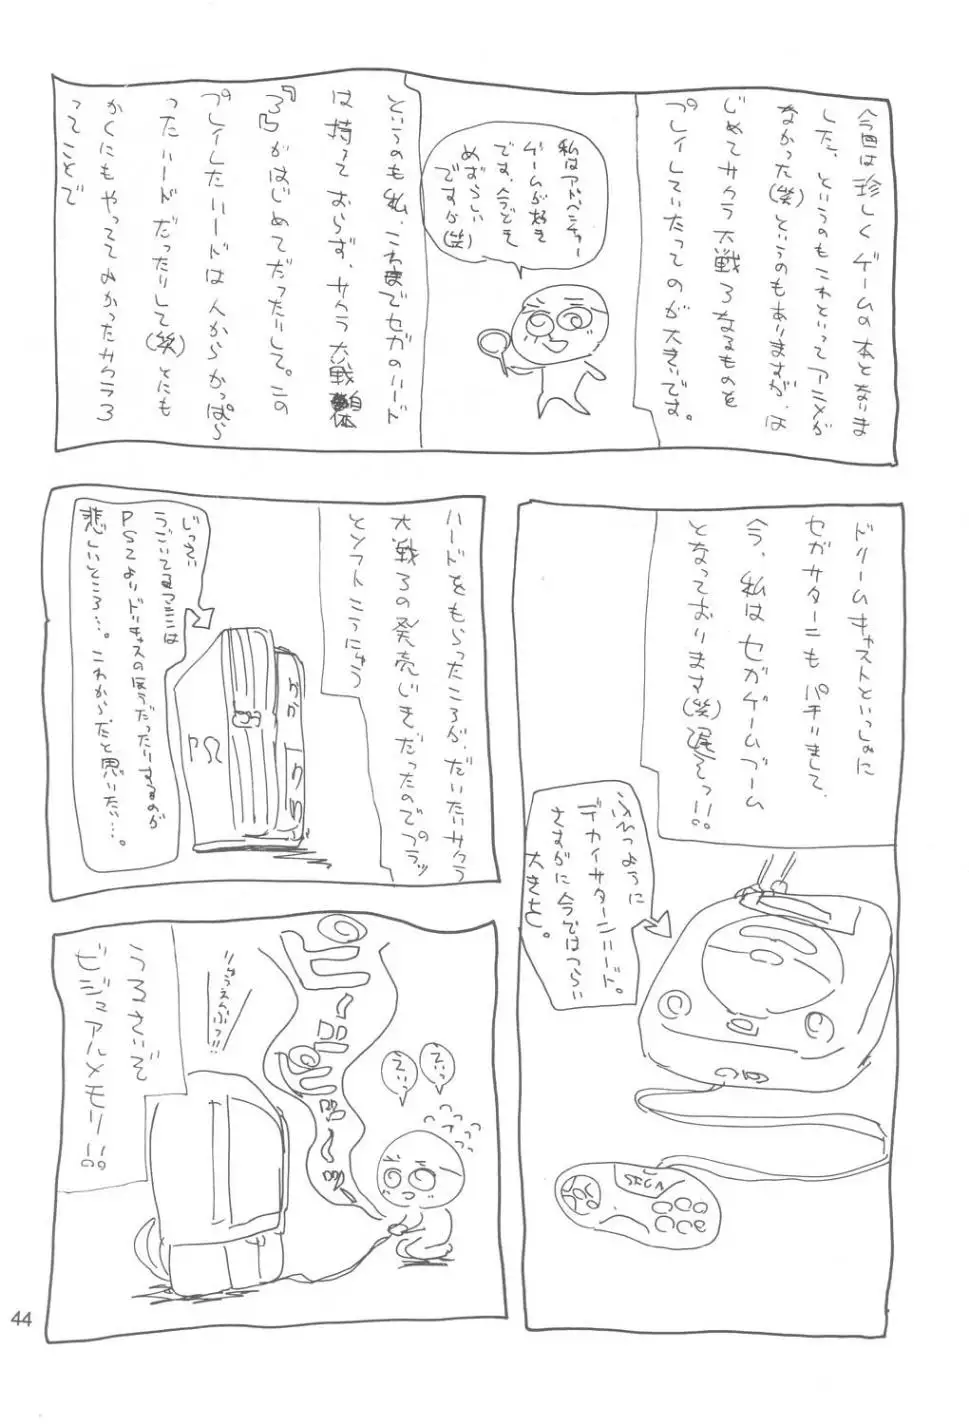 今回は珍しくゲームの本となりま
した。というのもこれといってアニメが
なかった(笑)というのもありますが、は
じめてサクラ大戦3なるものを
プレイしていたってのが大きいです。
私はアドベンチャー
ゲームが好き
です。今どき
めずらしい
ですが(笑)
というのも私、これまでセガのハード
は持っておらず、サクラ大戦自体
『3』がはじめてだったりして。この
プレイしたハードは人からかっぱら
ったハードだったりして(笑)とにも
かくにもやっててよかったサクラ3
ってことで
ドリームキャストといっしょに
セガサターンもパチりまして、
今、私はセガゲームブーム
となっております(笑)遅そっ!!。
ふれつように
デカイサターンハード。
さすがに今ではつらい
大きさ。
ハードをもらったころが、だいたいサクラ
大戦3の発売じきだったのでプラッ
とソフトこうにゅう
じっさい
うごいてるマシンは
PS2よりドリキャスのほうだったりするのが
悲しいところ…。これから、だと思いたい…。
うるさいぞ
ビジュアルメモリ!!。
えいっ
えいっ
44